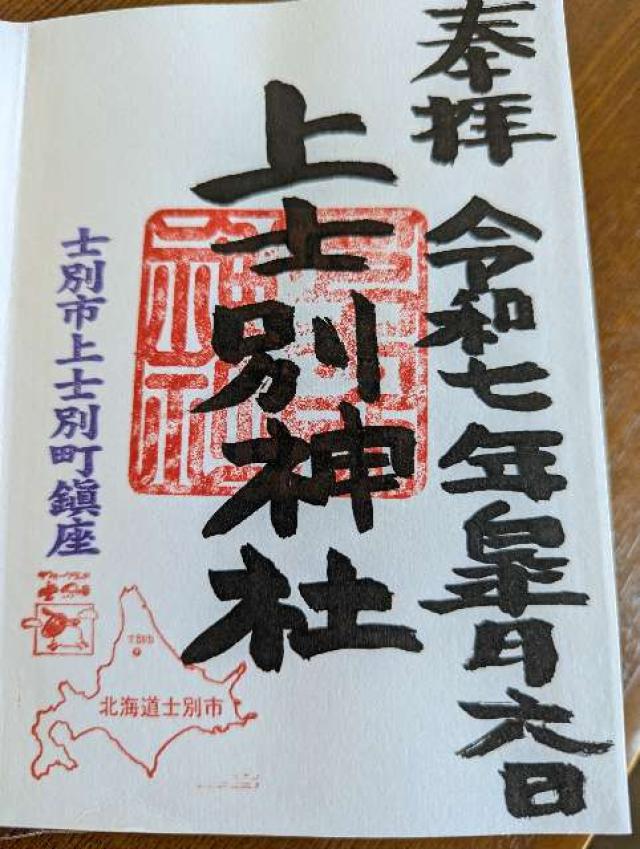 奉拝 令和七年皐月六日
上士別神社
士別市上士別町鎮座
北海道士別市